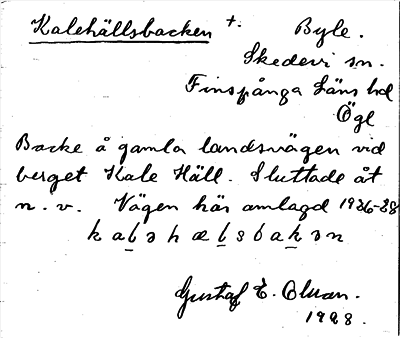 Kalehällsbacken +. Byle.
Skedevi sn.
Finspånga Läns hd
Ögl
Backe å gamla landsvägen vid
berget Kale Häll. Sluttade åt
n. v. Vägen här omlagd 1936-38
kalɘhælsbakɘn
Gustaf E.
1928.